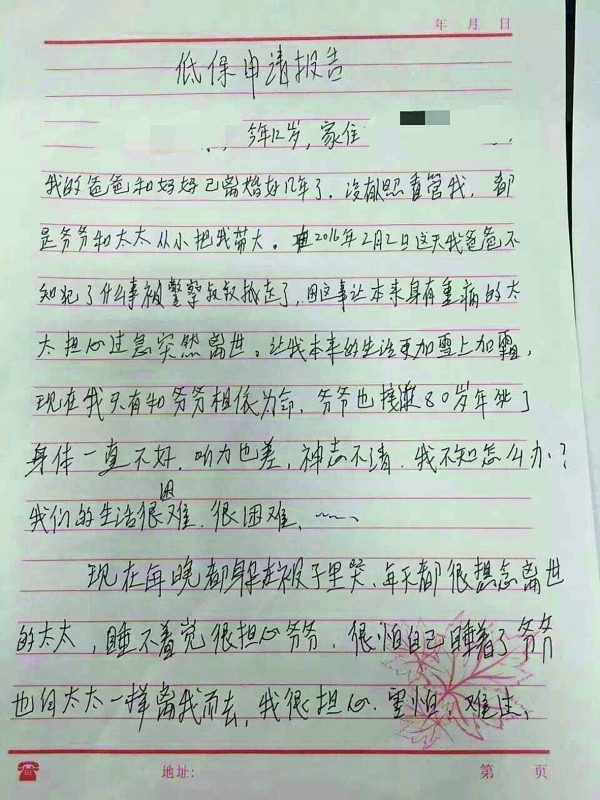 年 月 日
低保申请报告
今年12岁,家住
我的爸爸和妈妈已离婚好几年了。没有照看管我,都
是爷爷和太太从小把我带大。在2016年2月2日这天我爸爸不
知犯了什么事被警察叔叔抓走了,因这事让本来身有重病的太
太担心过急突然离世。让我本来的生活更加雪上加霜,
现在我只有和爷爷相依为命,爷爷也接近80岁年纪了
身体一直不好,听力也差,神志不清,我不知怎么办?
我们的生活很困难,很困难,
现在每晚都躲在被子里哭,每天都很想念离世
的太太,睡不着觉很担心爷爷,很怕自己睡着了爷爷
也向太太一样离我而去,我很担心,害怕,难过,
地址: 第 页